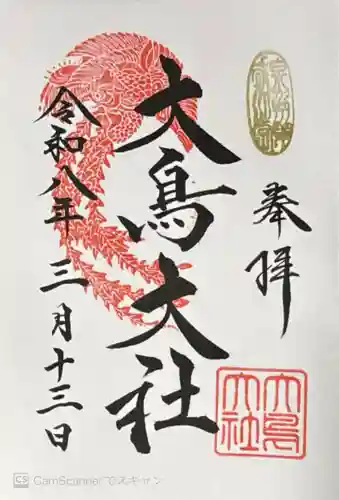 奉拝
大鳥大社
令和八年三月十三日
大鳥
大社
CS CamScannerでスキャン